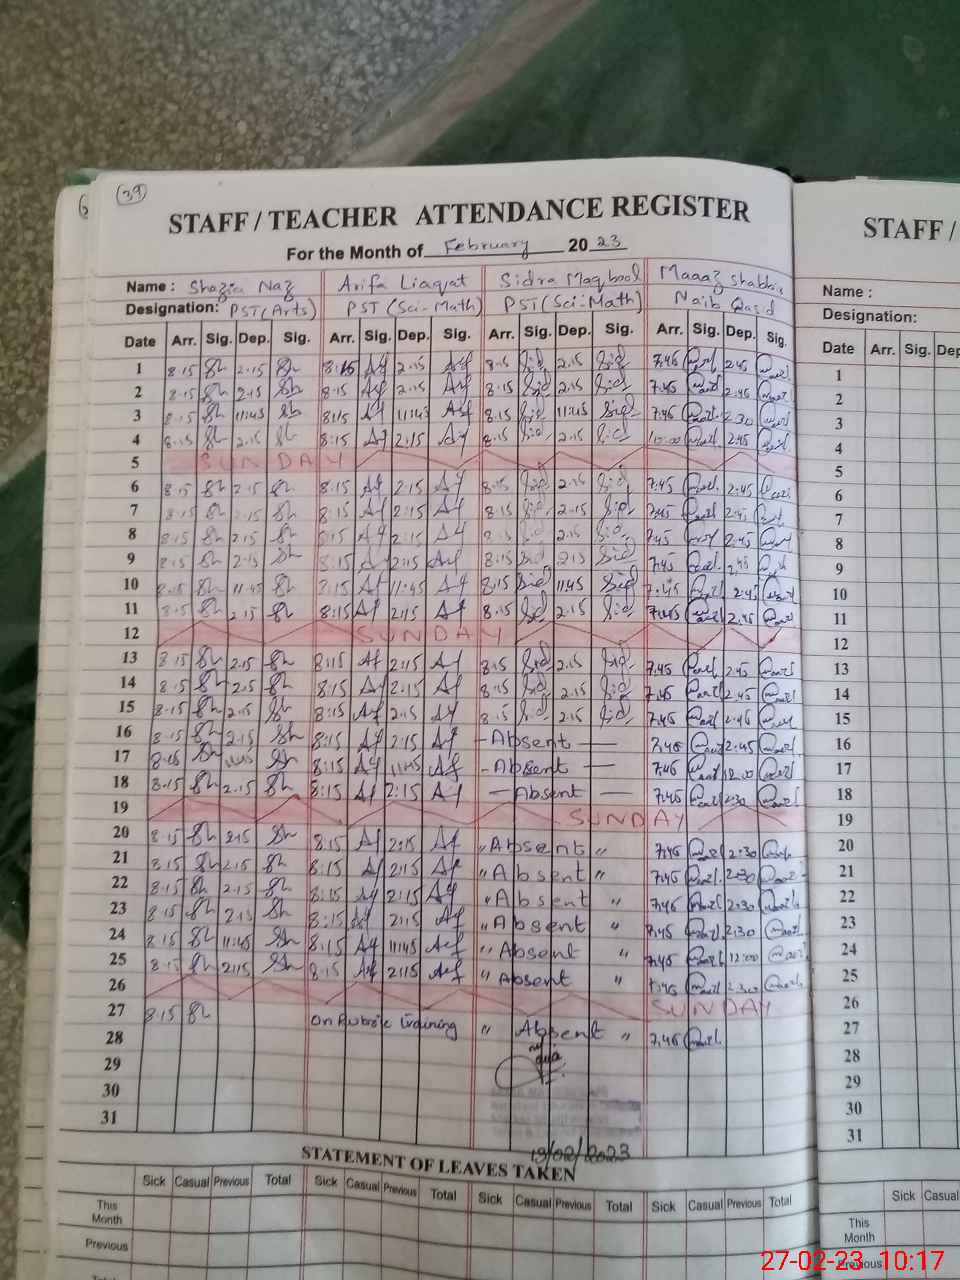 6
39
STAFF / TEACHER ATTENDANCE REGISTER
STAFF /
For the Month of February 2023
Name : Shazia Naz Arifa Liaqat Sidra Maqbool Maaaz Shabbir
Name :
Designation: PST (Arts) PST (Sci-Math) PST (Sci-Math) Naib Qasid
Designation:
Date Arr. Sig. Dep. Sig. Arr. Sig. Dep. Sig. Arr. Sig. Dep. Sig. Arr. Sig. Dep. Sig.
Date Arr. Sig. Dep
1 8.15 Sh 2.15 Sh 8:15 Af 2.15 Af 8.15 Sid 2.15 Sid 7.45 2.45
2 8.15 Sh 2.15 Sh 8.15 Af 2.15 Af 8.15 Sid 2.15 Sid 7.45 2.45
3 8.15 Sh 11:45 Sh 8:15 Af 11:45 Af 8.15 Sid 11:45 Sid 7.45 2.30
4 8.15 Sh 2.15 Sh 8:15 Af 2:15 Af 8.15 Sid 2.15 Sid 10:00 2.45
5 SUNDAY
6 8.15 Sh 2.15 Sh 8:15 Af 2:15 Af 8.15 Sid 2.15 Sid 7.45 2.45
7 8.15 Sh 2.15 Sh 8:15 Af 2:15 Af 8.15 Sid 2.15 Sid 7.45 2.45
8 8.15 Sh 2.15 Sh 8:15 Af 2:15 Af 8.15 Sid 2.15 Sid 7.45 2.45
9 8.15 Sh 2.15 Sh 8:15 Af 2:15 Af 8.15 Sid 2.15 Sid 7.45 2.45
10 8.15 Sh 11.45 Sh 8:15 Af 11:45 Af 8.15 Sid 11.45 Sid 7.45 2.45
11 8.15 Sh 2.15 Sh 8:15 Af 2:15 Af 8.15 Sid 2.15 Sid 7.45 2.45
12 SUNDAY
13 8.15 Sh 2.15 Sh 8:15 Af 2:15 Af 8.15 Sid 2.15 Sid 7.45 2.45
14 8.15 Sh 2.15 Sh 8:15 Af 2:15 Af 8.15 Sid 2.15 Sid 7.45 2.45
15 8.15 Sh 2.15 Sh 8:15 Af 2:15 Af 8.15 Sid 2.15 Sid 7.45 2.45
16 8.15 Sh 2.15 Sh 8:15 Af 2:15 Af - Absent - 7.45 2.45
17 8.15 Sh 11.45 Sh 8:15 Af 11:45 Af - Absent - 7.45 12.00
18 8.15 Sh 2.15 Sh 8:15 Af 2:15 Af - Absent - 7.45 2.30
19 SUNDAY
20 8.15 Sh 2.15 Sh 8:15 Af 2:15 Af " Absent " 7.45 2.30
21 8.15 Sh 2.15 Sh 8:15 Af 2:15 Af " Absent " 7.45 2.30
22 8.15 Sh 2.15 Sh 8:15 Af 2:15 Af " Absent " 7.45 2.30
23 8.15 Sh 2.15 Sh 8:15 Af 2:15 Af " Absent " 7.45 2.30
24 8.15 Sh 11:45 Sh 8:15 Af 11:45 Af " Absent " 7.45 12:00
25 8.15 Sh 2:15 Sh 8.15 Af 2:15 Af " Absent " 7.45 2.30
26 SUNDAY
27 8.15 Sh on Rubric training " Absent " 7.45
28
29
30
31
1
2
3
4
5
6
7
8
9
10
11
12
13
14
15
16
17
18
19
20
21
22
23
24
25
26
27
28
29
30
31
19/02/2023
STATEMENT OF LEAVES TAKEN
Sick Casual Previous Total Sick Casual Previous Total Sick Casual Previous Total Sick Casual Previous Total
Sick Casual
This Month
This Month
Previous
Previous
Total
27-02-23 10:17